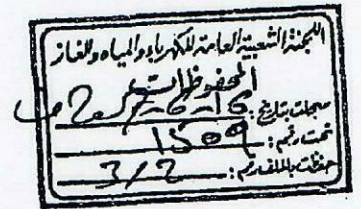 اللجنة الشعبية العامة للكهرباء والمياه والغاز
المحفوظات
سجلت بتاريخ:
تحت رقم: 1509
حفظت بالملف رقم: 3/2